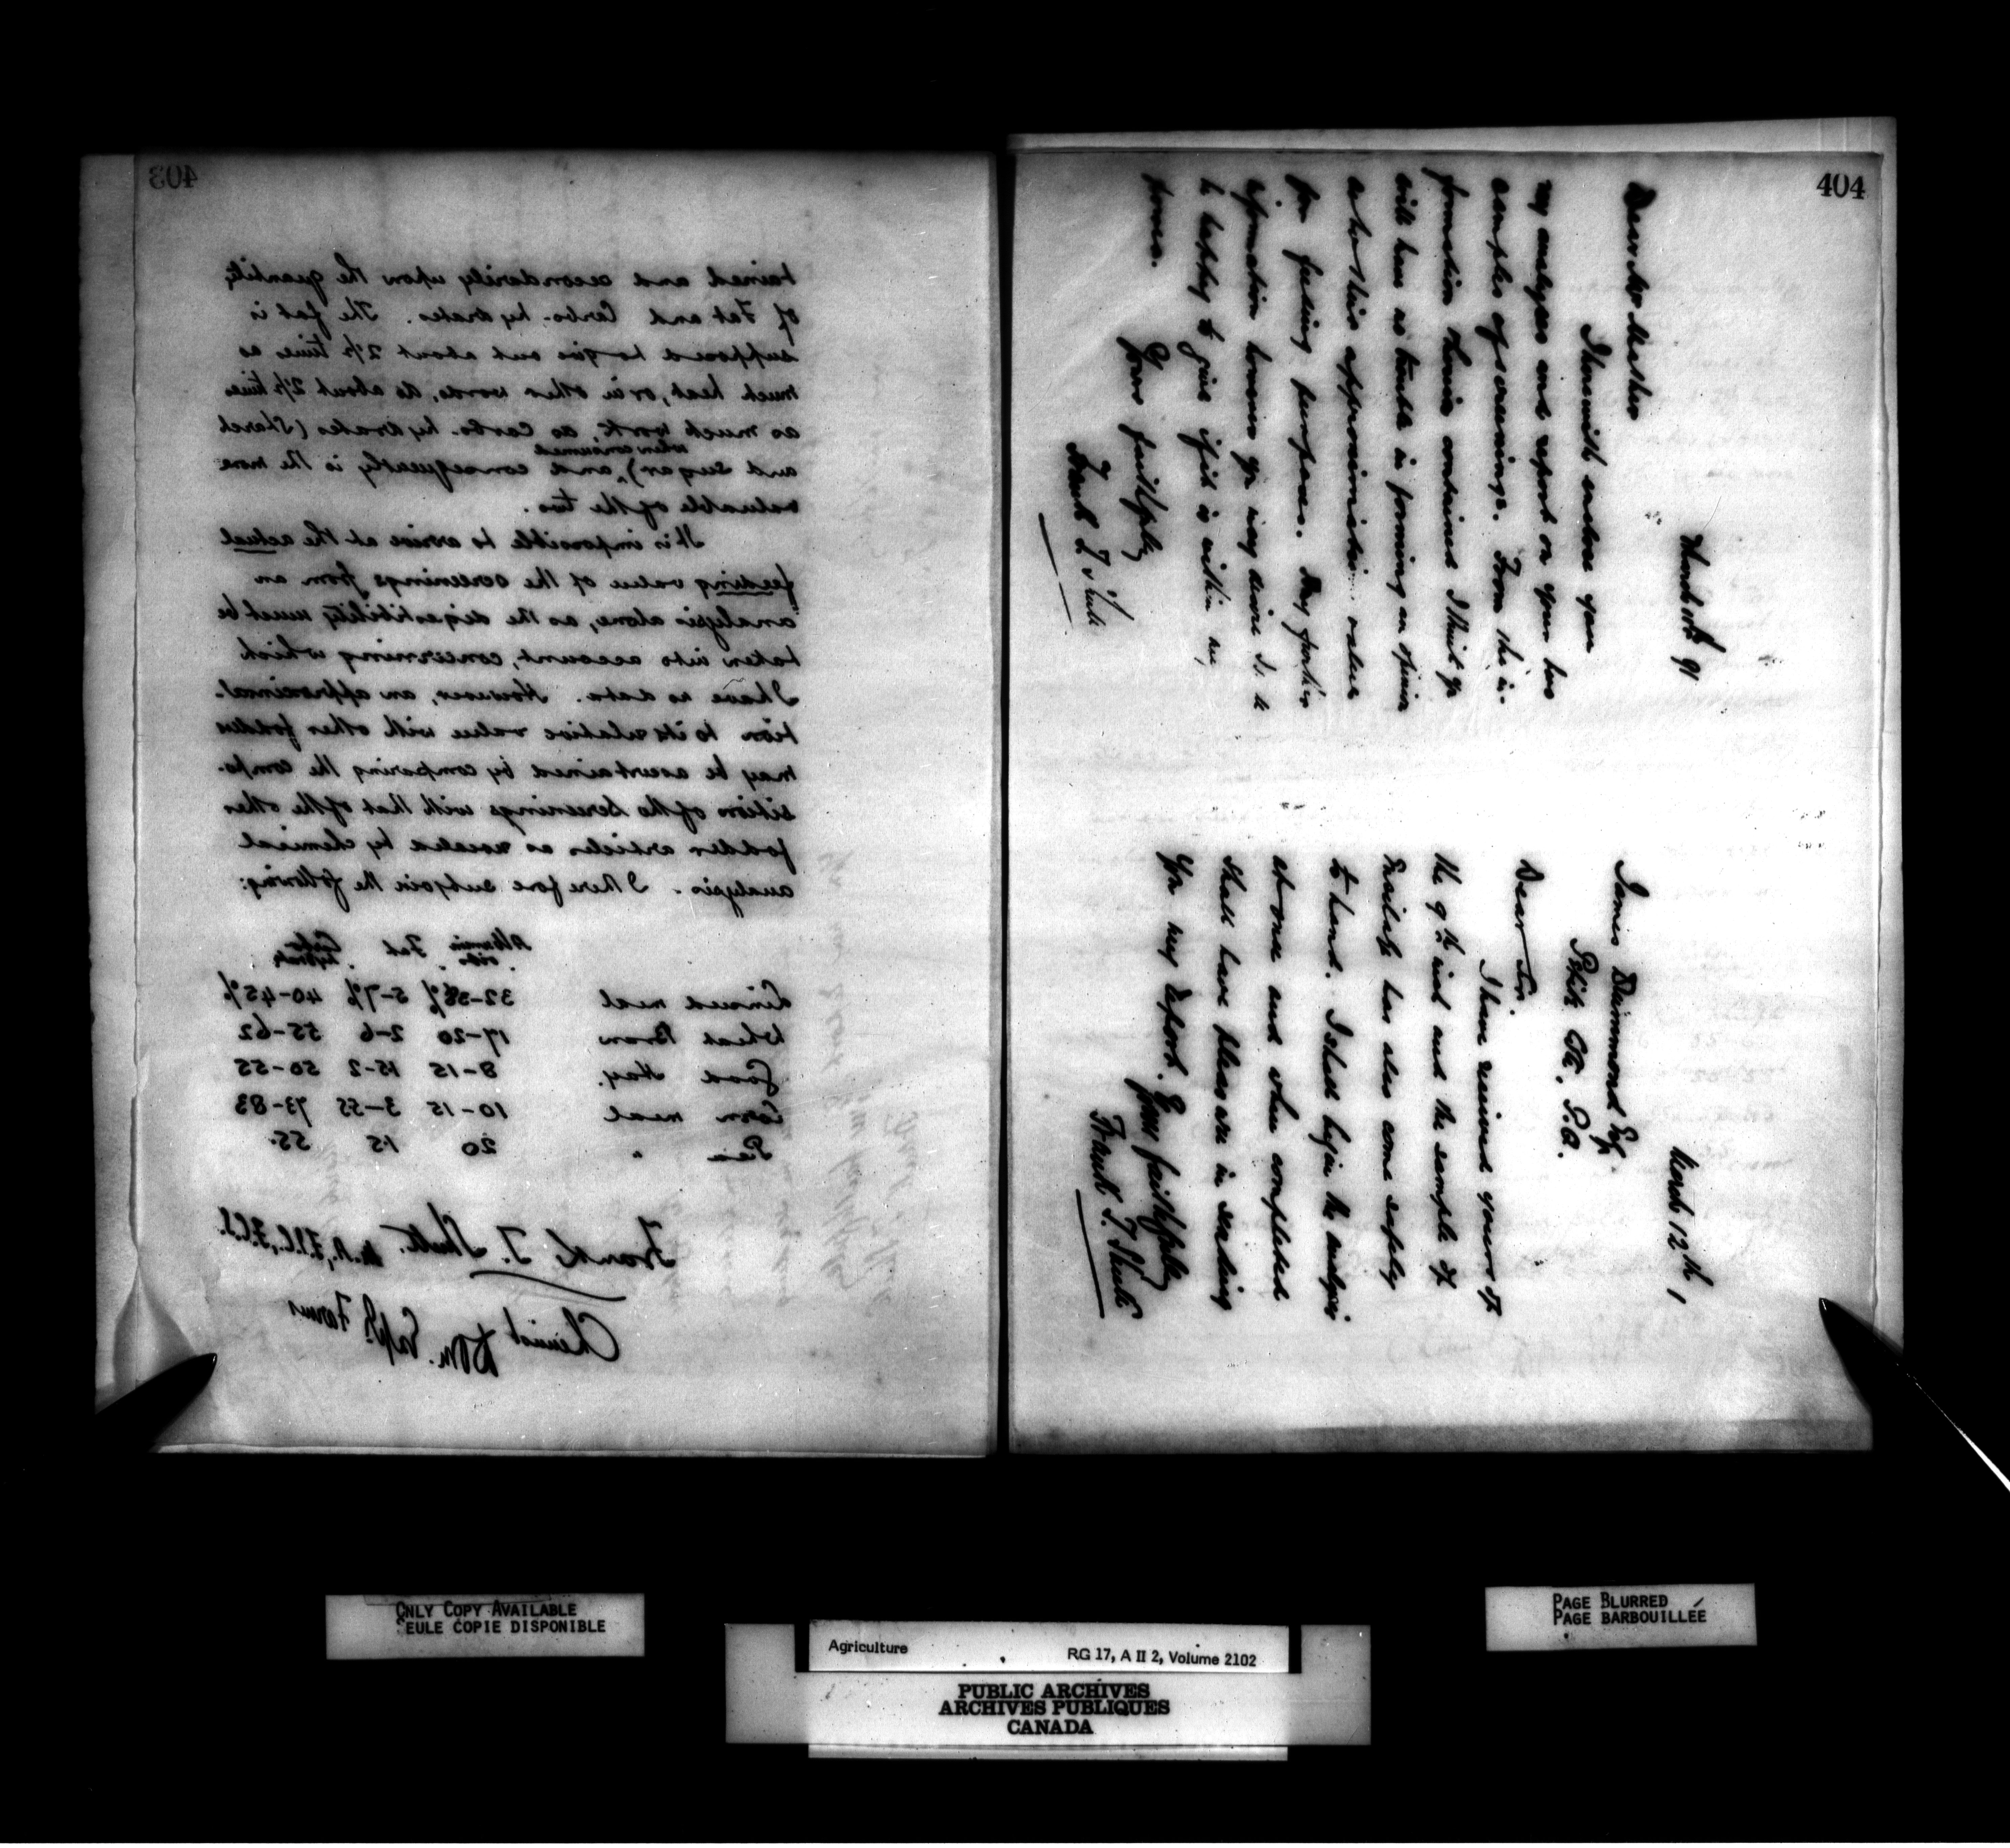 403
tained and secondarily upon the quantity
of Fat and Carbo-hydrates. The fat is
supposed to give out about 2½ times as
much heat, or in other words, do about 2½ times
as much work, as carbo-hydrates (Starch
when consumed
and sugar) and consequently is the more
valuable of the two.
It is impossible to arrive at the actual
feeding value of the screenings from an
analysis alone, as the digestibility must be
taken into account, concerning which
I have no data. However, an approxima-
tion to its relative value with other fodders
may be ascertained by comparing the compo-
sition of the screenings with that of the other
fodder articles as revealed by chemical
analysis. I therefore subjoin the following:
Albumin Fat Carbo
oids. hydrates
Linseed meal 32-38% 5-7% 40-45%
Wheat Bran 17-20 2-6 55-62
Good Hay. 8-15 1.5-2 50-55
Corn meal 10-15 3-5.5 73-83
Pea " 20 1.5 55.
Frank T. Shutt. M.A., F.I.C., F.C.S.
Chemist Dom. Expl. Farms
404
March 91
Dear Mr
I herewith enclose you
my analyses and report on your two
samples of screenings. From the in-
formation therein contained I think you
will have no trouble in forming an opinion
as to their approximative value
for feeding purposes. Any further
information however you may desire I'll be
happy to give if it is within my
power.
Yours faithfully
Frank T. Shutt
March 12th,
James Drummond Esq.
P.Q.
Dear Sir.
I have received yours of
the 9th inst and the sample of
has also come safely
to hand. I shall begin the analysis
at once and when completed
shall have pleasure in sending
you my report. Yours faithfully
Frank T. Shutt
ONLY COPY AVAILABLE
SEULE COPIE DISPONIBLE
PAGE BLURRED
PAGE BARBOUILLÉE
Agriculture RG 17, A II 2, Volume 2102
PUBLIC ARCHIVES
ARCHIVES PUBLIQUES
CANADA